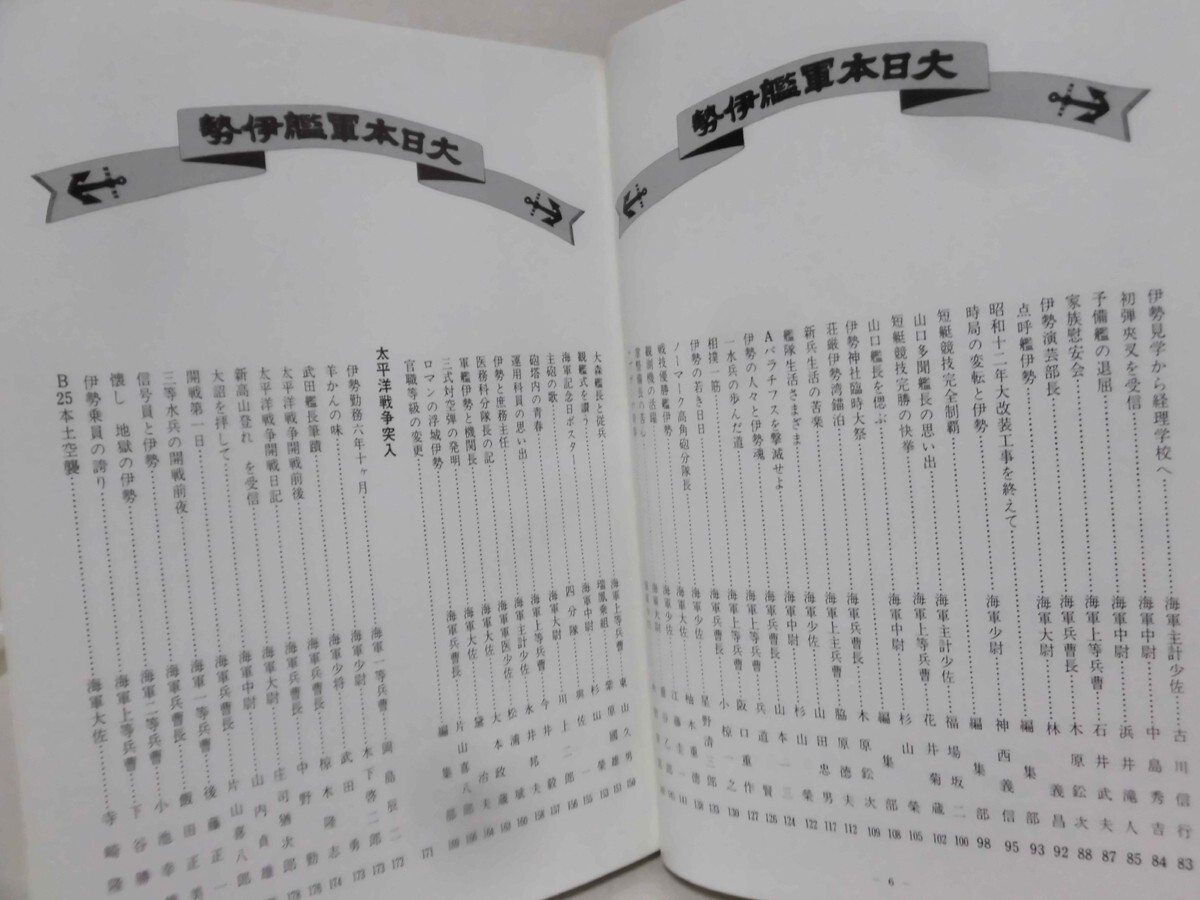 大日本軍艦伊勢
伊勢見学から経理学校へ……海軍主計少佐…古川信行 83
初弾夾叉を受信……海軍中尉…中島秀吉 84
予備艦の退屈……海軍中尉…浜井滝人 85
家族慰安会……海軍上等兵曹…石井武夫 87
伊勢演芸部長……海軍兵曹長…木原鉱次 88
点呼艦伊勢……海軍大尉…林義昌 92
昭和十二年大改装工事を終えて……編集部 93
時局の変転と伊勢……海軍少尉…神西義信 95
短艇競技完全制覇……編集部 98
山口多聞艦長の思い出……海軍主計少佐…福場坂二 100
短艇競技完勝の快挙……海軍上等兵曹…花井菊蔵 102
山口艦長を偲ぶ……海軍中尉…杉山榮 105
伊勢神社臨時大祭……編集部 108
荘厳伊勢湾錨泊……海軍兵曹長…木原鉱次 109
新兵生活の苦楽……海軍上主兵曹…脇原徳夫 112
艦隊生活さまざま……海軍兵曹長…山田忠男 117
Aパラチフスを撃滅せよ……海軍中尉…杉山榮 122
伊勢の人々と伊勢魂……海軍兵曹長…山本一三 124
一水兵の歩んだ道……海軍上等兵曹…兵道賢 126
相撲一筋……海軍上等兵曹…阪口重作 127
伊勢の若き日日……海軍兵曹長…小椋一之 130
ノーマーク高角砲分隊長……海軍少佐…星野清三郎
戦技優勝艦伊勢……海軍大佐…柚木重徳
観測機の活躍……海軍少佐…江藤圭一
— 6 —
大日本軍艦伊勢
大森艦長と従兵……海軍上等兵曹…東山久男
観艦式を讃う……瑞鳳乗組…栗原國雄
海軍記念日ポスター……海軍中尉…杉山榮
主砲の歌……四分隊…與佐一
砲塔内の青春……海軍大尉…川上二郎
運用科員の思い出……海軍上等兵曹…今井毅
伊勢と庶務主任……海軍主計少佐…永井邦夫
医務科分隊長の記……海軍軍医少佐…松浦
軍艦伊勢と機関長……海軍大佐…大本政蔵
三式対空弾の発明……海軍大佐…黛治夫
ロマンの浮城伊勢……海軍兵曹長…片山喜八郎
官職等級の変更……編集部 171
太平洋戦争突入
伊勢勤務六年十ヶ月……海軍一等兵曹…岡島辰二 172
羊かんの味……海軍少尉…木下啓二郎 173
武田艦長筆蹟……海軍少将…武田勇 173
太平洋戦争開戦前後……海軍兵曹長…椋木隆志 174
太平洋戦争開戦日記……海軍兵曹長…中野勤
新高山登れ を受信……海軍大尉…庄司猶次郎
大詔を拝して……海軍中尉…山内貞雄
開戦第一日……海軍兵曹長…片山喜八郎
三等水兵の開戦前夜……海軍一等兵曹…後藤正一
信号員と伊勢……海軍兵曹長…飯田正美
懐し 地獄の伊勢……海軍二等兵曹…小池幸
伊勢乗員の誇り……海軍上等兵曹…下谷勝
B25本土空襲……海軍大佐…寺崎隆